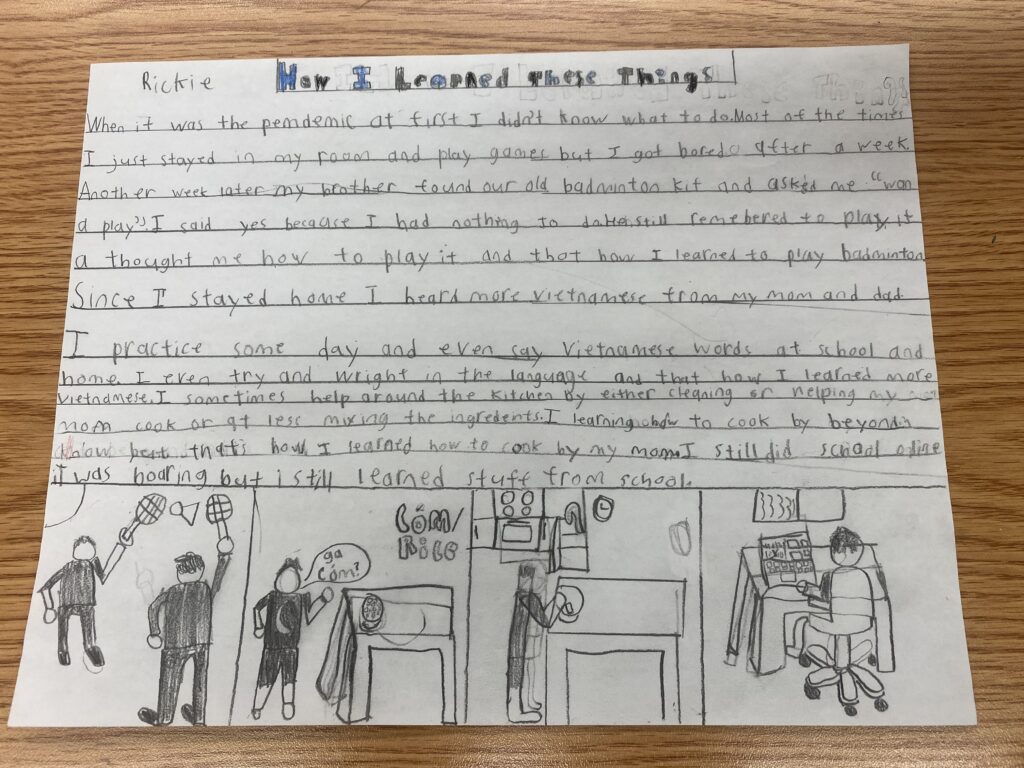 Rickie
How I Learned These Things
When it was the pemdemic at first I didn't know what to do. Most of the times
I just stayed in my room and play games but I got bored after a week.
Another week later my brother found our old badminton kit and asked me "wan
a play". I said yes because I had nothing to do. He still remebered to play it
a thought me how to play it and that how I learned to play badminton
Since I stayed home I heard more vietnamese from my mom and dad
I practice some day and even say Vietnamese words at school and
home. I even try and wright in the language and that how I learned more
Vietnamese. I sometimes help around the kitchen by either cleaning or helping my
mom cook or at less mixing the ingredents. I learning how to cook by beyond
how best that's how I learned how to cook by my mom. I still did school online
it was boaring but i still learned stuff from school.
Cơm/
Rice
ga
cơm?